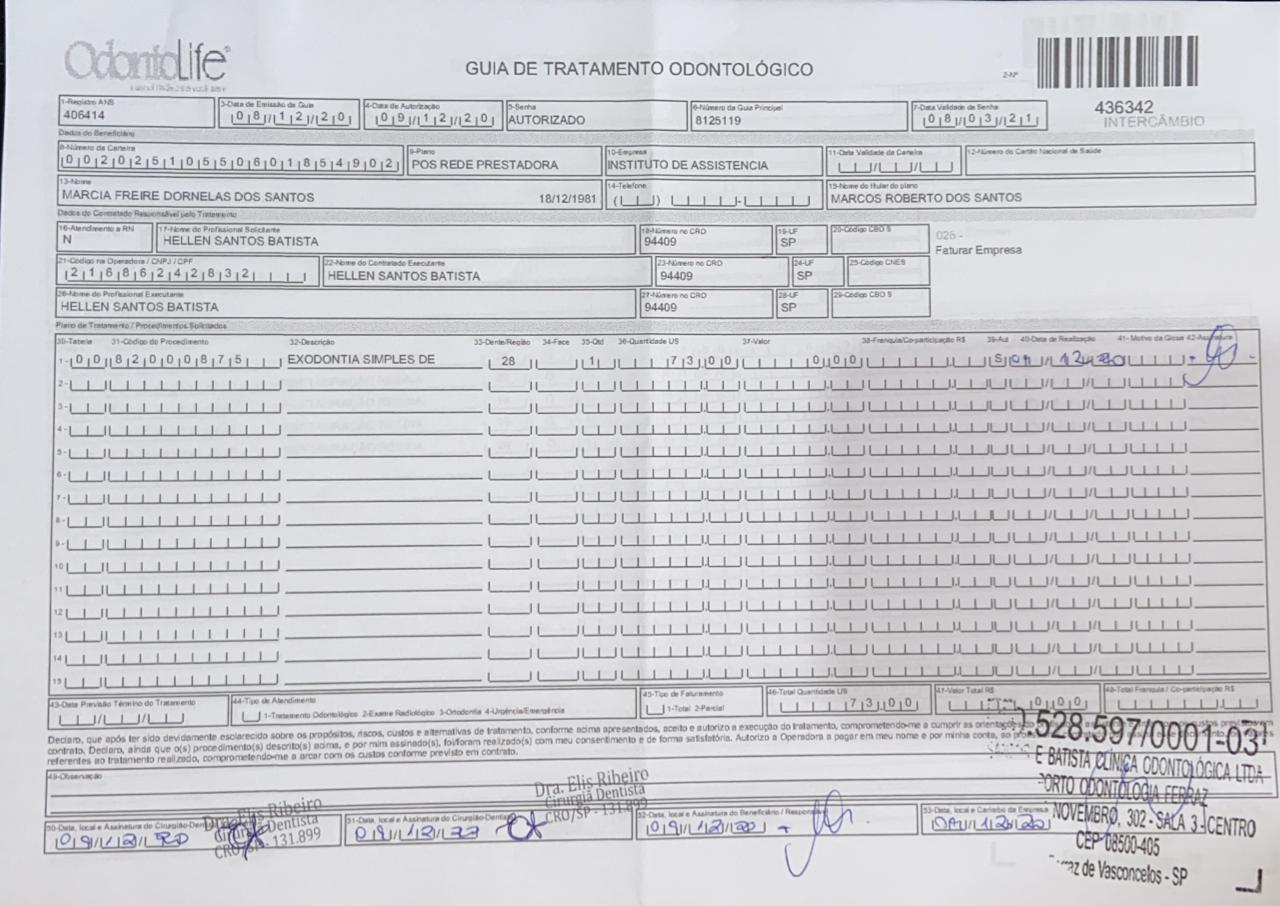 OdontoLife
GUIA DE TRATAMENTO ODONTOLÓGICO
2-Nº
436342
INTERCÂMBIO
1-Registro ANS
406414
3-Data de Emissão da Guia
08/12/20
4-Data de Autorização
09/12/20
5-Senha
AUTORIZADO
6-Número da Guia Principal
8125119
7-Data Validade da Senha
08/03/21
Dados do Beneficiário
8-Número da Carteira
00202510550601854902
9-Plano
POS REDE PRESTADORA
10-Empresa
INSTITUTO DE ASSISTENCIA
11-Data Validade da Carteira
12-Número do Cartão Nacional de Saúde
13-Nome
MARCIA FREIRE DORNELAS DOS SANTOS 18/12/1981
14-Telefone
15-Nome do titular do plano
MARCOS ROBERTO DOS SANTOS
Dados do Contratado Responsável pelo Tratamento
16-Atendimento a RN
N
17-Nome do Profissional Solicitante
HELLEN SANTOS BATISTA
18-Número no CRO
94409
19-UF
SP
20-Código CBO S
025 -
Faturar Empresa
21-Código na Operadora / CNPJ / CPF
21686242832
22-Nome do Contratado Executante
HELLEN SANTOS BATISTA
23-Número no CRO
94409
24-UF
SP
25-Código CNES
26-Nome do Profissional Executante
HELLEN SANTOS BATISTA
27-Número no CRO
94409
28-UF
SP
29-Código CBO S
Plano de Tratamento / Procedimentos Solicitados
30-Tabela 31-Código do Procedimento 32-Descrição 33-Dente/Região 34-Face 35-Qtd 36-Quantidade US 37-Valor 38-Franquia/Co-participação R$ 39-Aut 40-Data de Realização 41- Motivo da Glosa 42-Assinatura
1- 00 82000875 EXODONTIA SIMPLES DE 28 1 73,00 0,00 S 09/12/20
2-
3-
4-
5-
6-
7-
8-
9-
10
11
12
13
14
15
43-Data Previsão Término do Tratamento
44-Tipo de Atendimento
1-Tratamento Odontológico 2-Exame Radiológico 3-Ortodontia 4-Urgência/Emergência
45-Tipo de Faturamento
1-Total 2-Parcial
46-Total Quantidade US
73,00
47-Valor Total R$
0,00
48-Total Franquia / Co-participação R$
Declaro, que após ter sido devidamente esclarecido sobre os propósitos, riscos, custos e alternativas de tratamento, conforme acima apresentados, aceito e autorizo a execução do tratamento, comprometendo-me a cumprir as orientações
contrato. Declaro, ainda que o(s) procedimento(s) descrito(s) acima, e por mim assinado(s), foi/foram realizado(s) com meu consentimento e de forma satisfatória. Autorizo a Operadora a pagar em meu nome e por minha conta, ao
referentes ao tratamento realizado, comprometendo-me a arcar com os custos conforme previsto em contrato.
49-Observação
50-Data, local e Assinatura do Cirurgião-Dentista
09/12/20
Dra. Elis Ribeiro
Cirurgiã Dentista
CRO/SP - 131.899
51-Data, local e Assinatura do Cirurgião-Dentista
Dra. Elis Ribeiro
Cirurgiã Dentista
CRO/SP - 131.899
52-Data, local e Assinatura do Beneficiário / Responsável
09/12/20
53-Data, local e Carimbo da Empresa
528.597/0001-03
E BATISTA CLÍNICA ODONTOLÓGICA LTDA
PORTO ODONTOLOGIA FERRAZ
NOVEMBRO, 302 - SALA 3 - CENTRO
CEP 08500-405
de Vasconcelos - SP